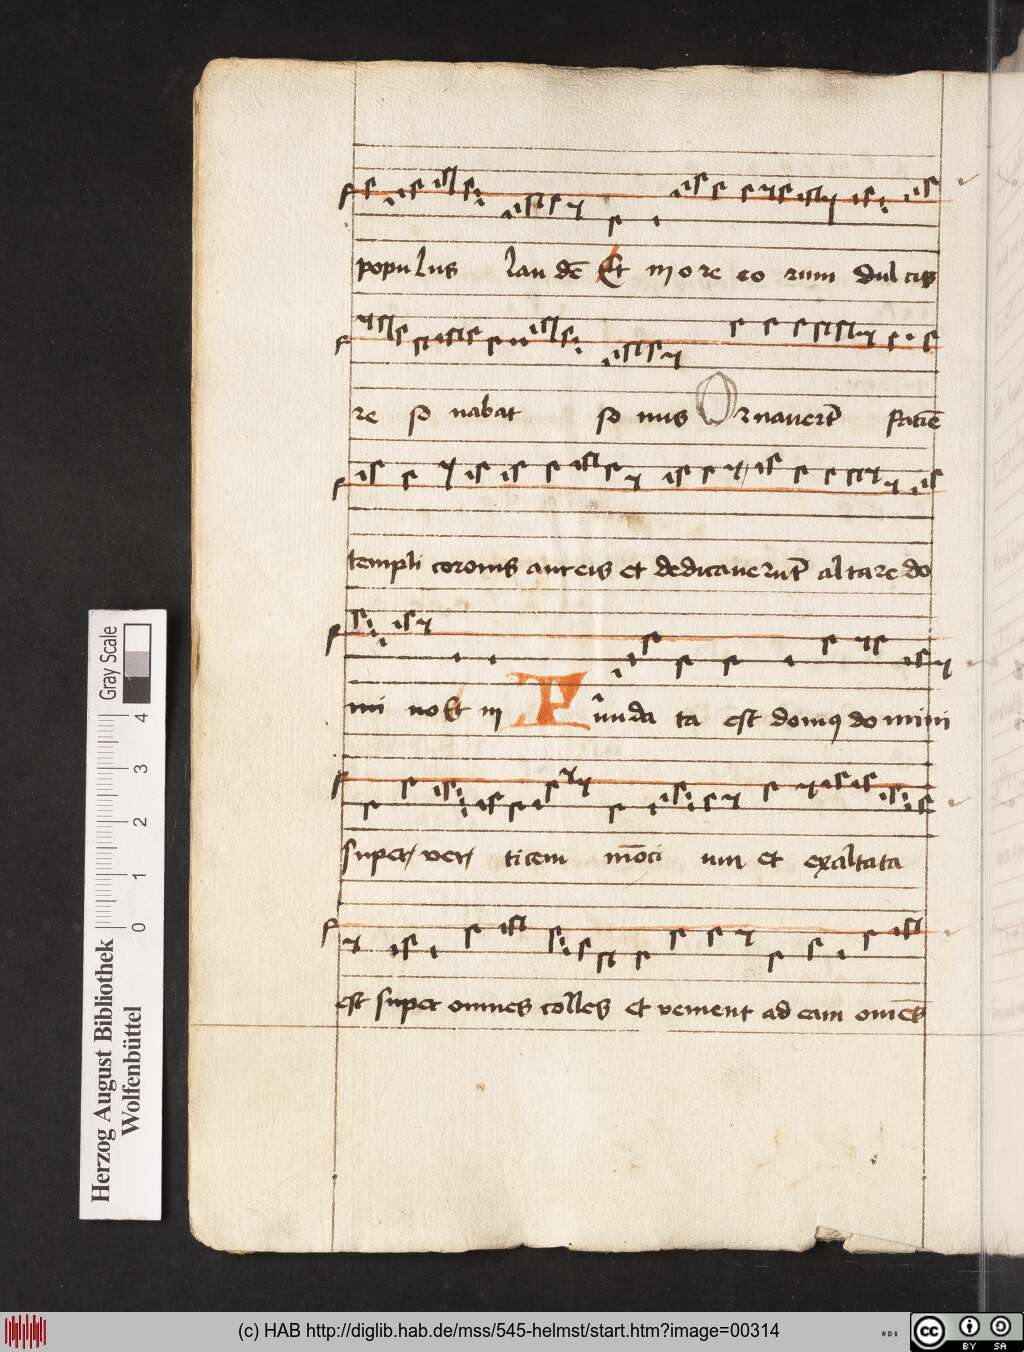 populus laudē Et in ore eo rum dulcis
re so nabat so nus Ornauerūt faciē
templi coronis aureis et dedicauerūt altare do
mi no Et in Fūnda ta est domus domini
super verticem mōci um et exaltata
est super omnes colles et venient ad eam omēs
Herzog August Bibliothek
Wolfenbüttel
Gray Scale
0 1 2 3 4
(c) HAB http://diglib.hab.de/mss/545-helmst/start.htm?image=00314
cc BY SA